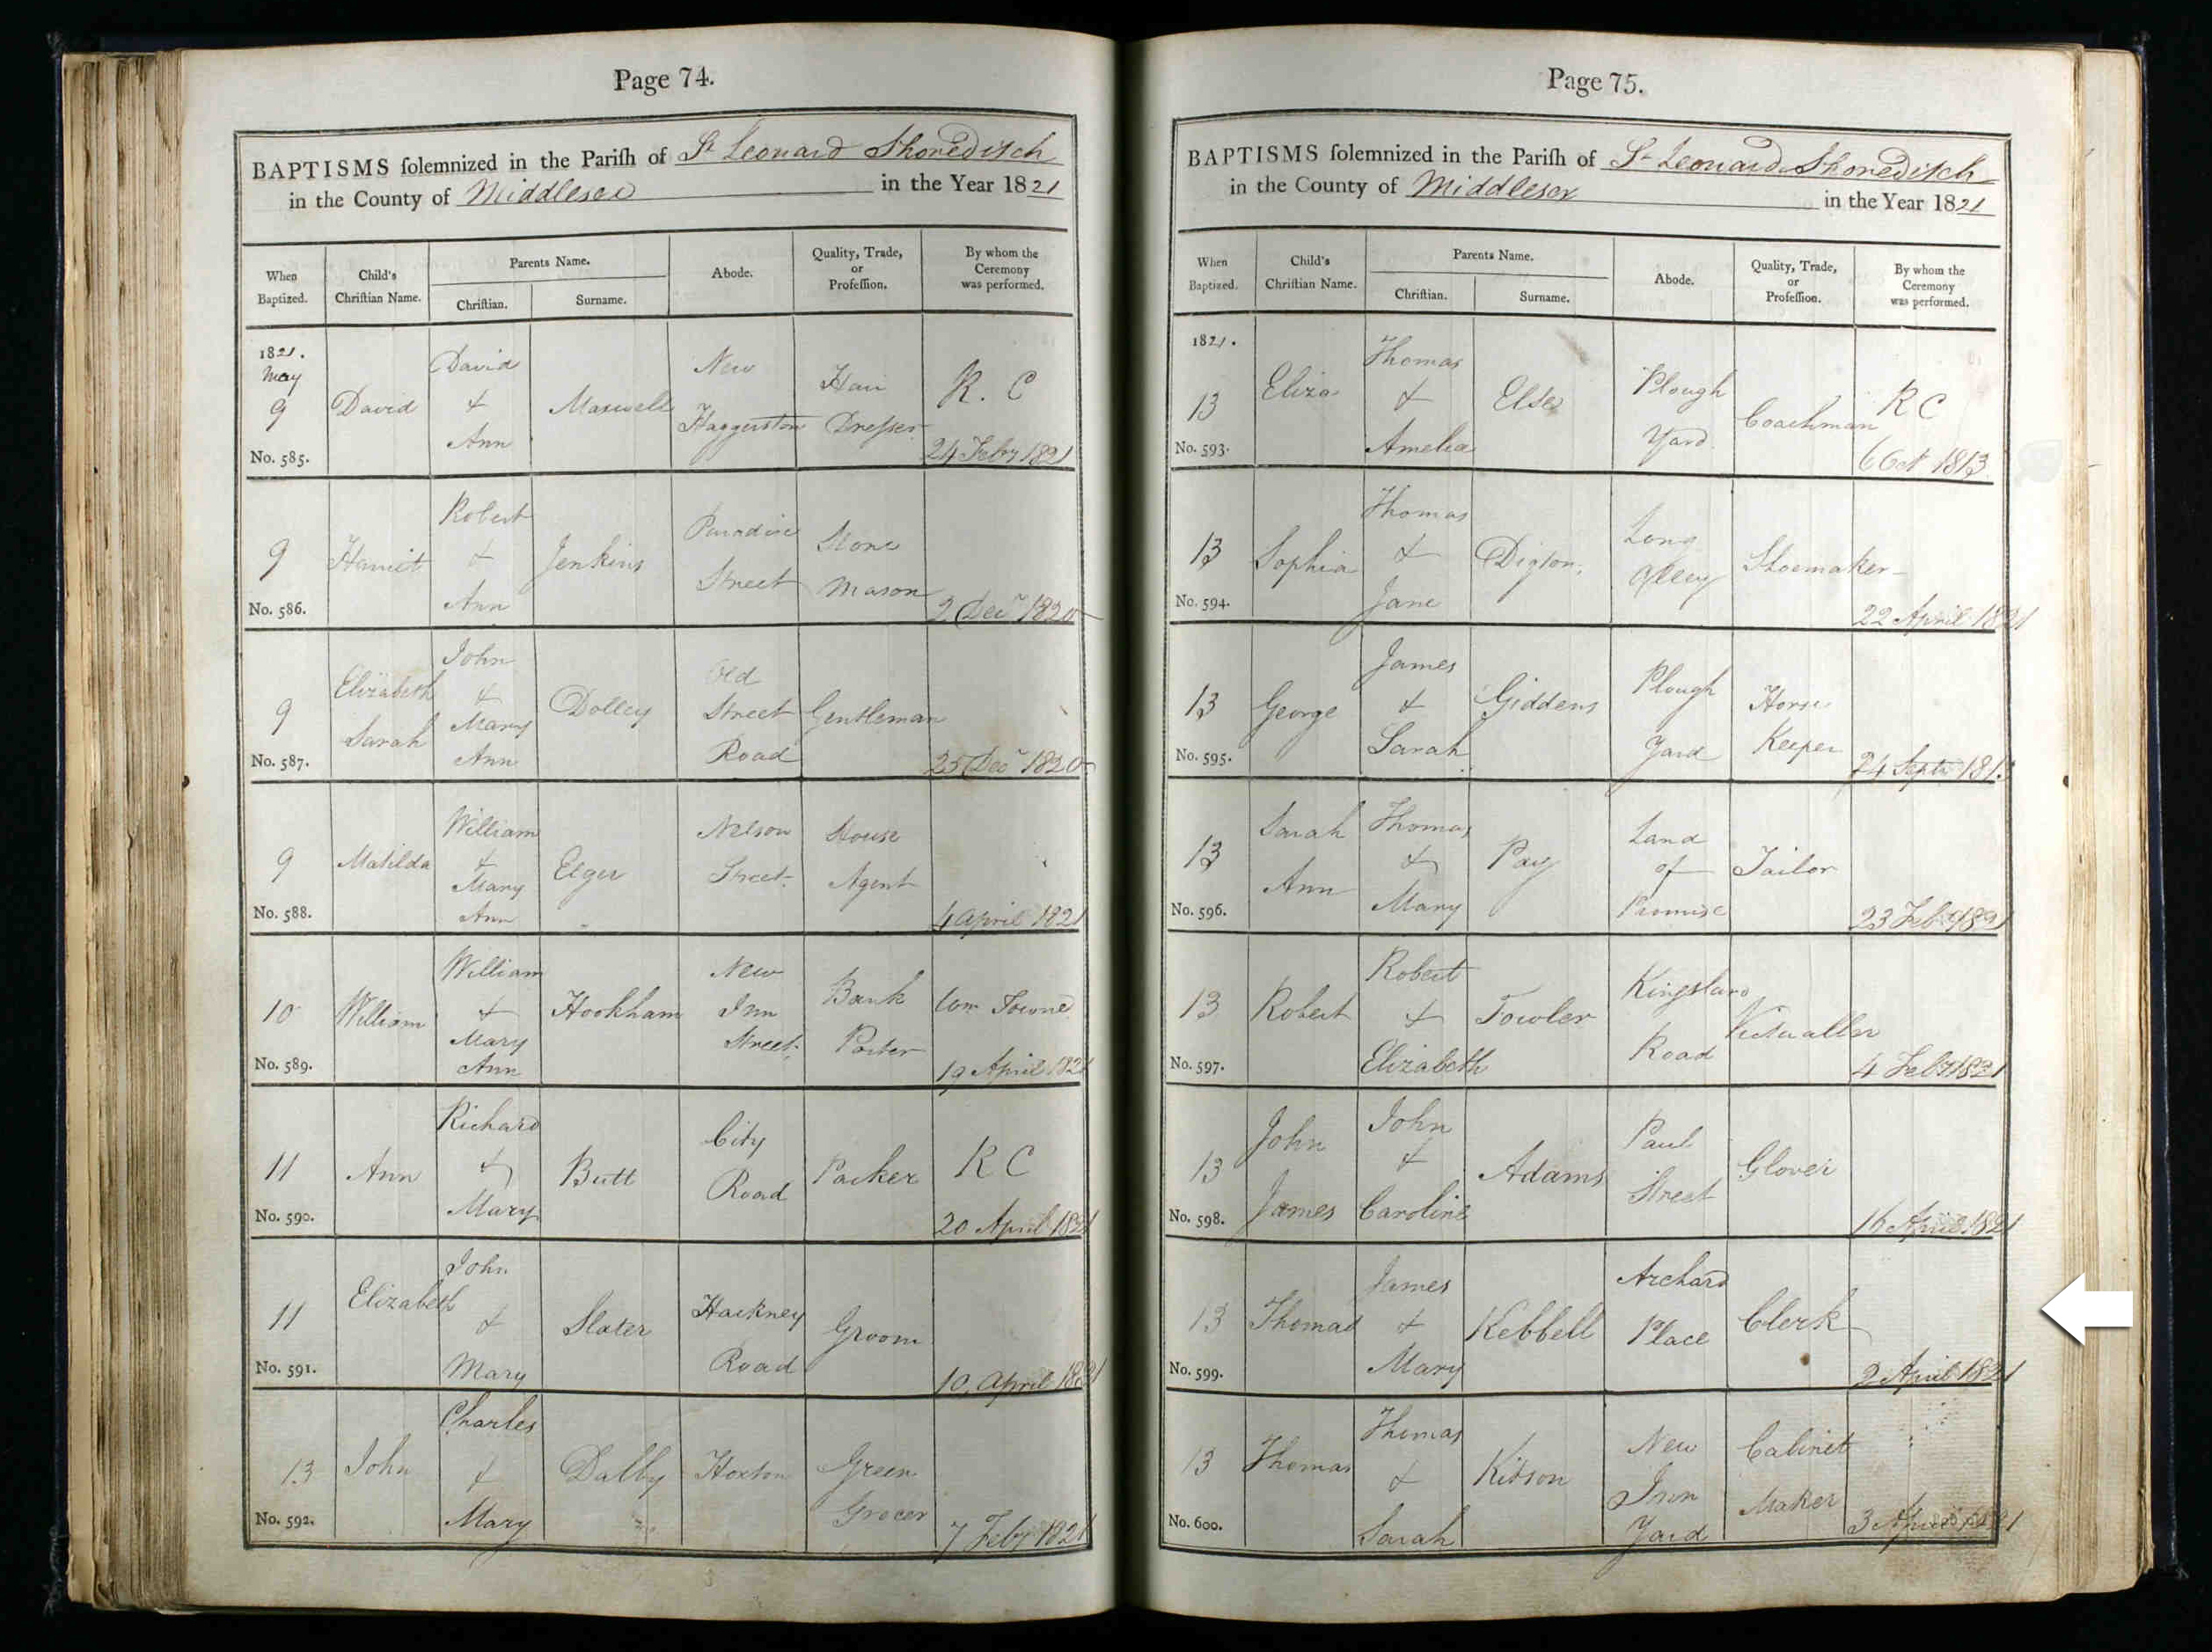 Page 74.
BAPTISMS solemnized in the Parish of St Leonard Shoreditch
in the County of Middlesex in the Year 1821
When Baptized.
Child's Christian Name.
Parents Name.
Christian.
Surname.
Abode.
Quality, Trade, or Profession.
By whom the Ceremony was performed.
1821.
May
9
No. 585.
David
David
&
Ann
Maxwell
New
Haggerston
Hair
Dresser
R. C
24 Feby 1821
9
No. 586.
Harriet
Robert
&
Ann
Jenkins
Paradise
Street
Stone
Mason
2 Decr 1820
9
No. 587.
Elizabeth
Sarah
John
&
Mary
Ann
Dolley
Old
Street
Road
Gentleman
25 Decr 1820
9
No. 588.
Matilda
William
&
Mary
Ann
Elger
Nelson
Street
House
Agent
4 April 1821
10
No. 589.
William
William
&
Mary
Ann
Hookham
New
Inn
Street
Bank
Porter
Wm Towne
19 April 1821
11
No. 590.
Ann
Richard
&
Mary
Butt
City
Road
Packer
R C
20 April 1821
11
No. 591.
Elizabeth
John
&
Mary
Slater
Hackney
Road
Groom
10 April 1821
13
No. 592.
John
Charles
&
Mary
Dalby
Hoxton
Green
Grocer
7 Feby 1821
Page 75.
BAPTISMS solemnized in the Parish of St Leonard Shoreditch
in the County of Middlesex in the Year 1821
When Baptized.
Child's Christian Name.
Parents Name.
Christian.
Surname.
Abode.
Quality, Trade, or Profession.
By whom the Ceremony was performed.
1821.
13
No. 593.
Eliza
Thomas
&
Amelia
Else
Plough
Yard
Coachman
R C
6 Oct 1813
13
No. 594.
Sophia
Thomas
&
Jane
Digton
Long
Alley
Shoemaker
22 April 1821
13
No. 595.
George
James
&
Sarah
Giddens
Plough
Yard
Horse
Keeper
24 Septr 1813
13
No. 596.
Sarah
Ann
Thomas
&
Mary
Pay
Land
of
Promise
Tailor
23 Feby 1821
13
No. 597.
Robert
Robert
&
Elizabeth
Fowler
Kingsland
Road
Victualler
4 Feby 1821
13
No. 598.
John
James
John
&
Caroline
Adams
Paul
Street
Glover
16 April 1821
13
No. 599.
Thomas
James
&
Mary
Kebbell
Archard
Place
Clerk
2 April 1821
13
No. 600.
Thomas
Thomas
&
Sarah
Kitson
New
Inn
Yard
Cabinet
Maker
3 April 1821